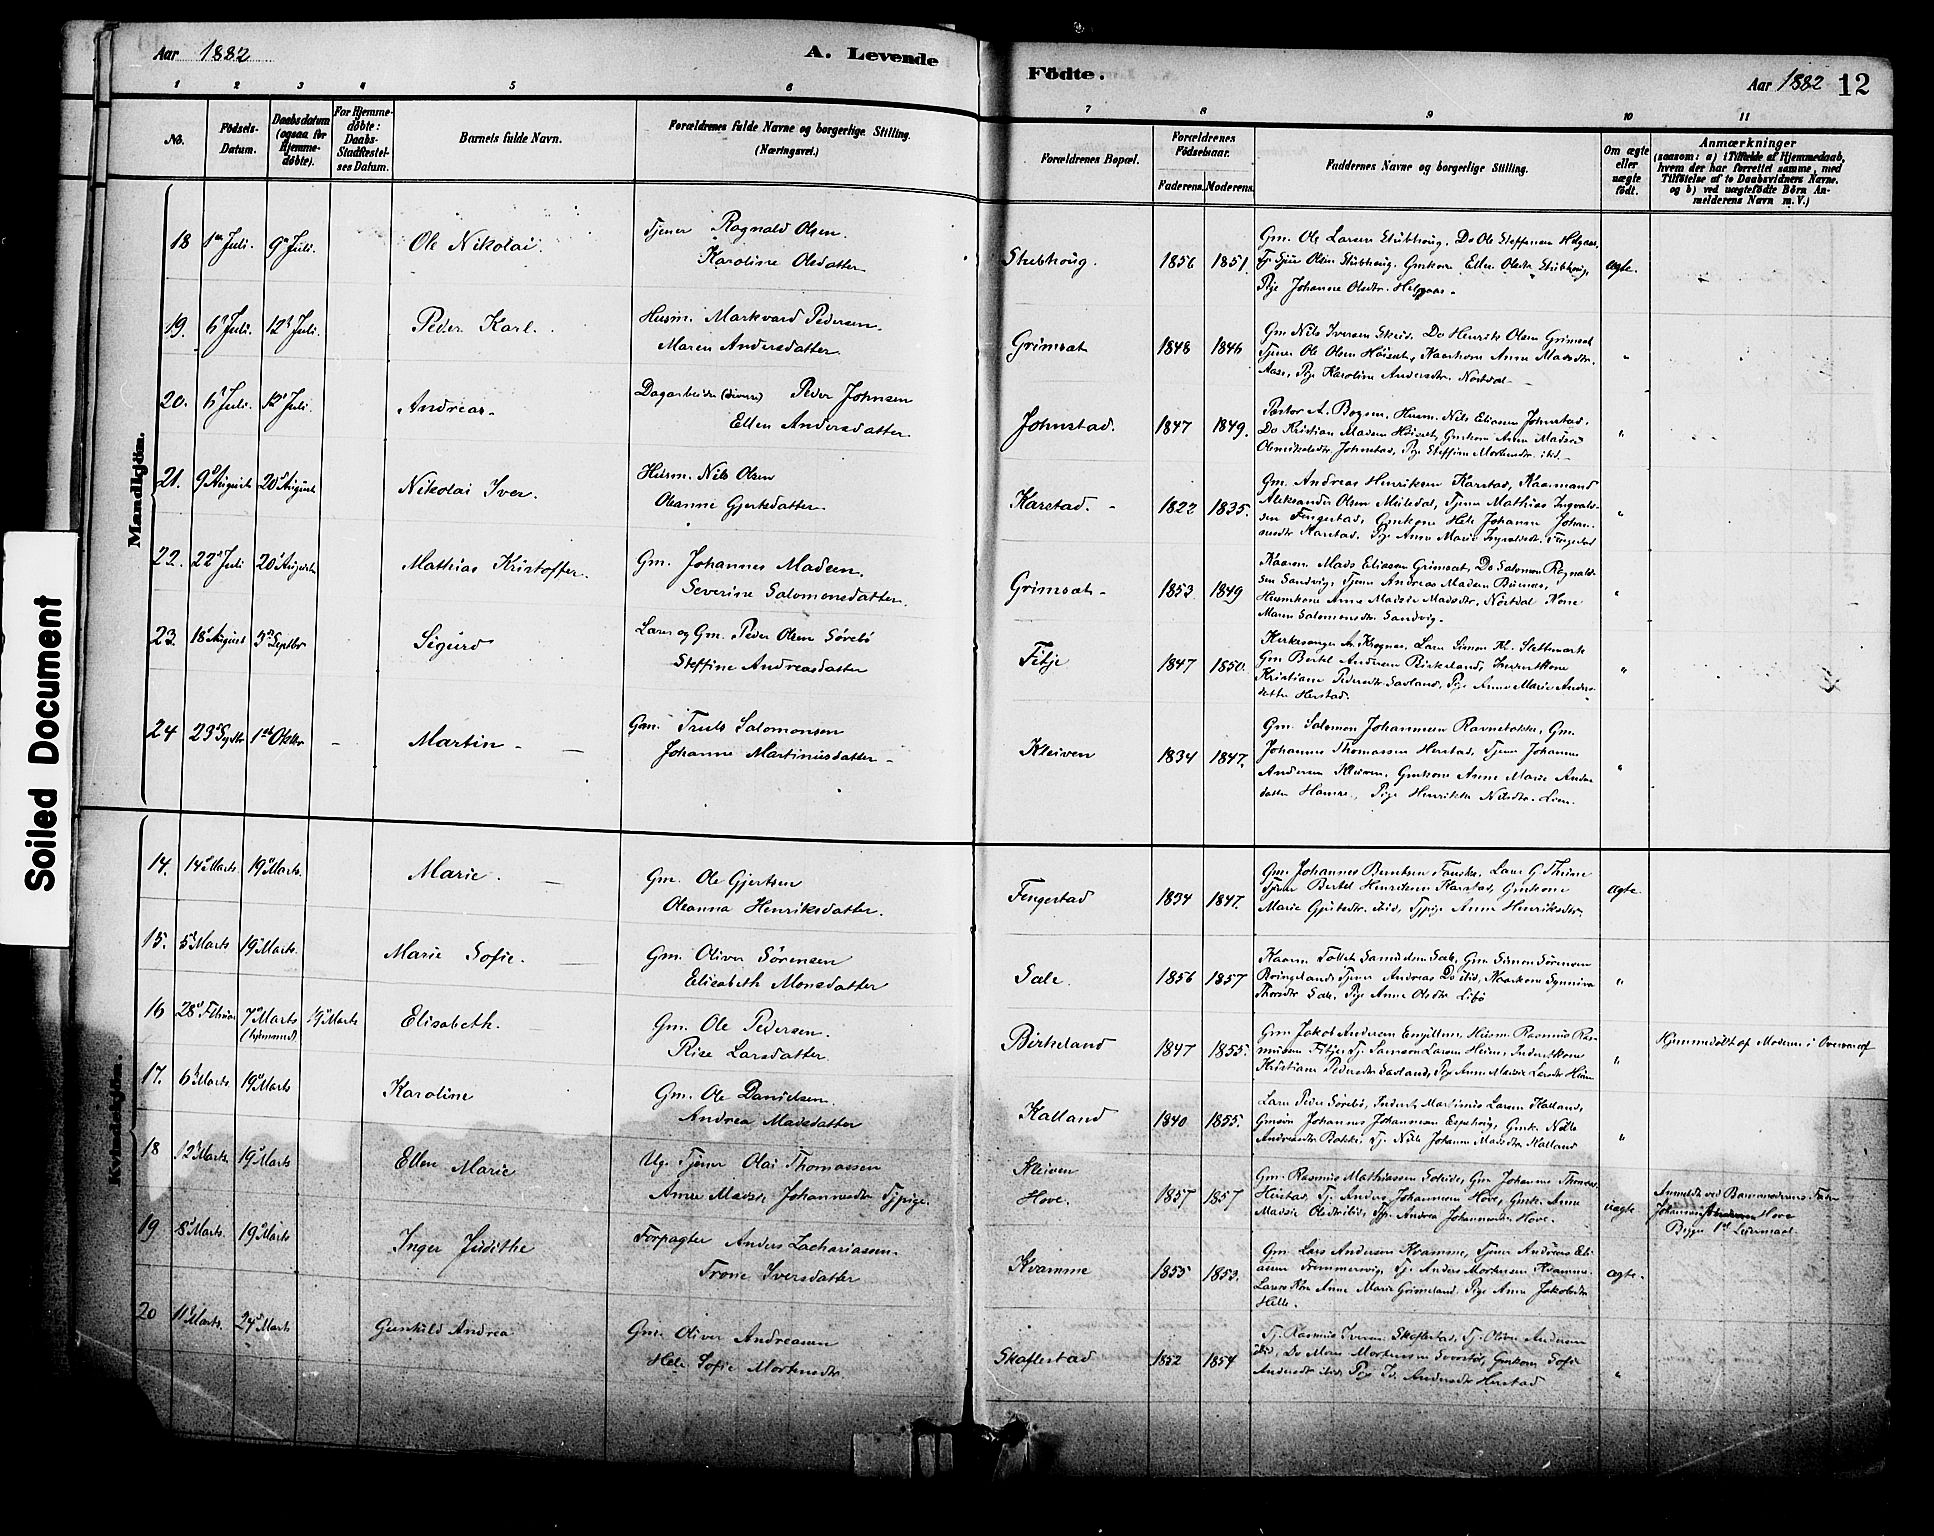 Aar 1882
A. Levende
Födte.
Aar 1882 12
1 2 3 4 5 6 7 8 9 10 11
No.
Födsels-Datum.
Daabsdatum (ogsaa for Hjemmedöbte).
For Hjemmedöbte: Daabs-Stadfæstelses Datum.
Barnets fulde Navn.
Forældrenes fulde Navne og borgerlige Stilling. (Næringsvei.)
Forældrenes Bopæl.
Forældrenes Födselsaar.
Faderens. Moderens.
Faddernes Navne og borgerlige Stilling.
Om ægte eller uægte födt.
Anmærkninger
(saasom: a) i Tilfælde af Hjemmedaab, hvem der har forrettet samme, med Tilföielse af to Daabsvidners Navne, og b) ved uægtefödte Börn Anmelderens Navn m. V.)
Mandkjön.
18 1ste Juli. 9de Juli. Ole Nikolai. Tjener Ragnald Olsen. Karoline Olsdatter Stubhoug. 1856 1851.
Gm. Ole Larsen Stubhoug, Do Ole Steffensen Helgaas,
Tj. Sjur Olsen Stubhoug, Gmkone Ellen Olsdtr Stubhoug,
Pige Johanne Olsdtr. Helgaas. ægte.
19. 6te Juli. 12te Juli. Peder Karl. Husm. Markvard Pedersen. Maren Andersdatter Grimsæt 1848 1846
Gm Nils Iversen Skeid, Do Henrik Olsen Grimsæt
Tjener Ole Olsen Höisæt, Kaarkone Anne Madsdtr.
Aase, Pige Karoline Andersdtr. Nordal "
20. 6te Juli. 12te Juli. Andreas. Dagarbeider Peder Johnsen Ellen Andersdatter Johnstad. 1847 1849.
Pastor A. Bogsen, Husm. Nils Eliassen Johnstad,
Do Kristian Madsen Höisæt, Gmkone Anne Madsdtr
Johnstad, Pige Steffine Mortensdtr. ibid. "
21. 9de August 20de August Nikolai Iver. Husm. Nils Olsen Oleanne Gjertsdatter. Karstad. 1822 1835.
Gm. Andreas Henriksen Karstad, Kaarmand
Aleksander Olsen Myledal, Tjener Mathias Ingvaldsen
Fengestad, Gmkone Hele Johanne Johannesdtr
Karstad. Pige Anne Marie Ingvaldsdtr. Fengestad "
22. 22de Juli 20de August Mathias Kristoffer. Gm. Johannes Madsen. Severine Salomonsdatter. Grimsæt 1853 1849
Kaarm. Mads Eliassen Grimsæt, Do Salomon Ragnaldsen
Sandvig, Tjener Andreas Madsen
Husmkone Anne Madsdtr, Nordal Kone
Maren Salomonsdtr. Sandvig. "
23. 18de August 3die Septbr Sigurd Lærer og Gm. Peder Olsen Sörebö Steffine Andreasdatter Fitje 1847 1850.
Kirkesanger A. Krognæs, Lærer Simon Kl. Stettevik
Gm Bertel Andersen Birkeland, Inderstkone
Kristiane Pedersdtr Savland, Pige Anne Marie Andersdatter
Herstad. "
24 23de Septbr 1ste Oktbr Martin Gm. Truls Salomonsen Johanne Martinusdatter Kleiven 1834 1847.
Gm. Salomon Johannessen Ravnebakke, Gm.
Johannes Thomassen Herstad, Tjener Johannes
Andersen Kleiven, Gmkone Anne Marie Andersdatter
Hamre, Pige Henrikke Nilsdtr. Lien. "
Kvindekjön.
14. 14de Marts 19de Marts. Marie. Gm. Ole Gjertsen Oleanna Henriksdatter. Fengestad 1854 1847.
Gm. Johannes Berntsen Fauske, Lars G. Thune
Tjener Bertel Henriksen Karstad, Gmkone
Marie Gjertsdtr. ibid, Tjpige Anne Henriksdtr. ægte.
15. 5te Marts. 19de Marts. Marie Sofie. Gm. Oliver Sörensen Elisabeth Monsdatter Sale. 1856 1857
Kaarm Tollef Samuelsen Sale, Gm Simon Sörensen
Bringeland, Tjener Andreas Do ibid, Kaarkone Synniva
Thorsdtr Sale, Pige Anne Olsdtr Libö "
16 28de Februar 7de Marts (hjemmed) 19de Marts Elisabeth. Gm. Ole Pedersen. Rise Larsdatter. Birkeland 1847 1855.
Gm Jakob Andersen Engelsen, Husm Rasmus Rasmussen
Fitje, Tj. Samson Larsen Heien, Inderstkone
Kristiane Pedersdtr Savland, Pige Anne Marie Larsdtr Heien "
Hjemmedöbt af Moderen i Overvær af
17. 6te Marts 19de Marts Karoline Gm. Ole Danielsen Andrea Madsdatter Kalland 1840 1855.
Lærer Peder Sörebö, Inderst Martinus Larsen Kalland,
Gmsön Johannes Johannesen Espehoug, Gmk. Nille
Andreasdtr Bakke, Tj. Nille Johanne Madsdtr Kalland "
18 12te Marts. 19de Marts Ellen Marie Ug. Tjener Olai Thomassen Kleiven Anne Marie Johannesdtr Tjpige. Hove. 1857 1857
Gm. Rasmus Mathiassen Soleide, Gm Johannes Thomassen
Herstad, Tj. Anders Johannesen Hove, Gmk. Anne
Madsdtr Olsdtr ibid, Tjp. Andrea Johannesdtr Hove. uægte.
Anmeldt ved Barnemoderens Fader
Johannes Hove
Begges 1ste Leiermaal.
19 8de Marts. 19de Marts Inger Judithe Forpagter Anders Zachariassen. Trone Iversdatter Kvamme 1855 1853.
Gm. Lars Andersen Kvamme, Tjener Andreas Eliassen
Trommersvig, Tj. Anders Mortensen Kvamme.
Lærers Kone Anne Marie Grimeland, Pige Anne Jakobsdtr
Helle. ægte.
20 11te Marts. 24de Marts Gunhild Andrea Gm. Oliver Andreassen Hele Sofie Mortensdtr. Skaflestad 1852 1854
Tj. Rasmus Iversen Skaflestad, Tj. Oliver Andersen
ibid, Do Mons Mortensen Svortöl, Gmkone Sofie
Andersdtr ibid, Pige Andersdtr Herstad "
Soiled Document